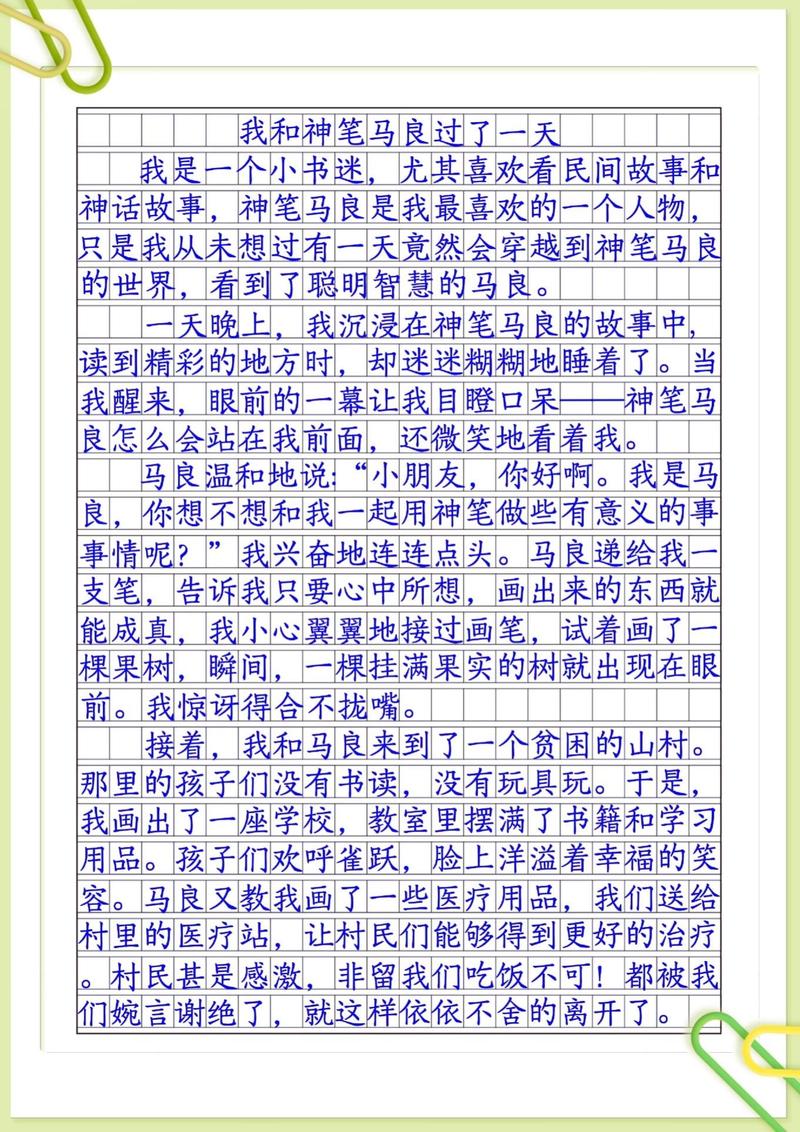 我和神笔马良过了一天
我是一个小书迷，尤其喜欢看民间故事和
神话故事，神笔马良是我最喜欢的一个人物，
只是我从未想过有一天竟然会穿越到神笔马良
的世界，看到了聪明智慧的马良。
一天晚上，我沉浸在神笔马良的故事中，
读到精彩的地方时，却迷迷糊糊地睡着了。当
我醒来，眼前的一幕让我目瞪口呆——神笔马
良怎么会站在我前面，还微笑地看着我。
马良温和地说：“小朋友，你好啊。我是马
良，你想不想和我一起用神笔做些有意义的事
事情呢？”我兴奋地连连点头。马良递给我一
支笔，告诉我只要心中所想，画出来的东西就
能成真，我小心翼翼地接过画笔，试着画了一
棵果树，瞬间，一棵挂满果实的树就出现在眼
前。我惊讶得合不拢嘴。
接着，我和马良来到了一个贫困的山村。
那里的孩子们没有书读，没有玩具玩。于是，
我画出了一座学校，教室里摆满了书籍和学习
用品。孩子们欢呼雀跃，脸上洋溢着幸福的笑
容。马良又教我画了一些医疗用品，我们送给
村里的医疗站，让村民们能够得到更好的治疗
。村民甚是感激，非留我们吃饭不可！都被我
们婉言谢绝了，就这样依依不舍的离开了。